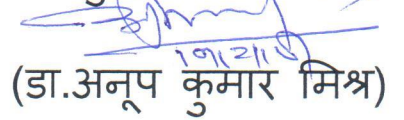 (डा.अनूप कुमार मिश्र)